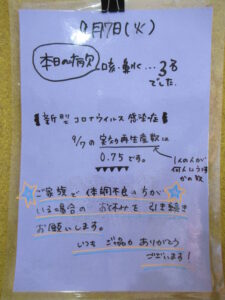 9月7日(火)
本日の病欠
咳・鼻水…3名
でした。
新型コロナウイルス感染症
9/7の実効再生産数は
0.75です。
1人の人が
何人にうつす
かの数
ご家族で体調不良の方が
いる場合のお休みを引き続き
お願いします。
いつもご協力ありがとう
ございます!